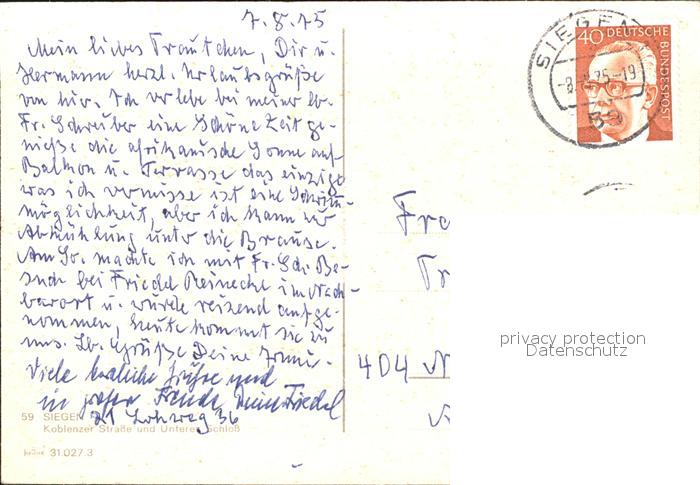 7.8.75
Mein liebes Trautchen, Dir u.
Hermann herzl. Urlaubsgrüße
von hier. Ich verlebe bei meiner lb.
Fr. Schreiber eine schöne Zeit ge-
nieße die afrikanische Sonne auf
Balkon u. Terrasse das einzige
was ich vermisse ist eine Schwimm-
möglichkeit, aber ich kann zur
Abkühlung unter die Brause.
Am So. machte ich mit Fr. Schr. Be-
such bei Friedel Reinecke im Nach-
barort u. wurde reizend aufge-
nommen, heute kommt sie zu
uns. Lb. Grüße Deine
Viele herzliche Grüße und
in Freude Deine Friedel
21 Lohweg 36
59 SIEGEN
Koblenzer Straße und Unteres Schloß
31.027.3
SIEGEN
-8.-8.75-19
59
40 DEUTSCHE
BUNDESPOST
Fra
Tr
404 N
privacy protection
Datenschutz